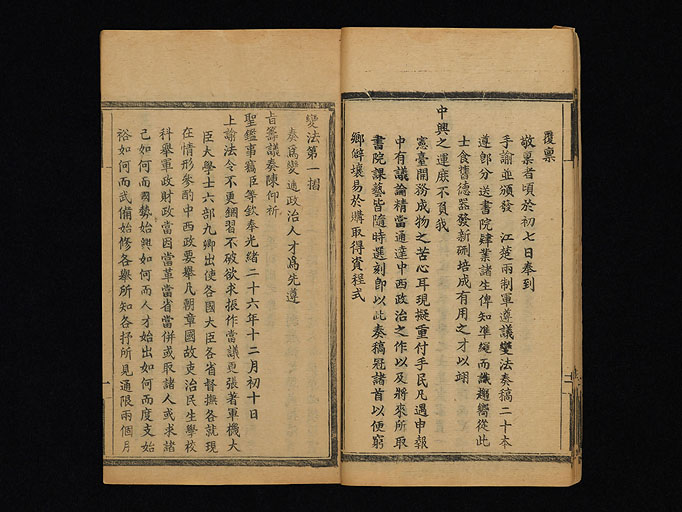 覆稟
敬稟者頃於初七日奉到
手諭並頒發 江楚兩制軍遵議變法奏稿二十本
遵即分送書院肄業諸生俾知準繩而識趨嚮從此
士食舊德器發新硎培成有用之才以翊
中興之運庶不負我
憲臺開務成物之苦心耳現擬重付手民凡遇申報
中有議論精當通達中西政治之作以及將來所取
書院課藝皆隨時選刻即以此奏稿冠諸首以便窮
鄉僻壤易於購取得資程式
變法第一摺
奏為變通政治人才為先遵
旨籌議奏陳仰祈
聖鑑事竊臣等欽奉光緒二十六年十二月初十日
上諭法令不更錮習不破欲求振作當議更張著軍機大
臣大學士六部九卿出使各國大臣各省督撫各就現
在情形參酌中西政要舉凡朝章國故吏治民生學校
科舉軍政財政當因當革當省當併或取諸人或求諸
己如何而國勢始興如何而人才始出如何而度支始
裕如何而武備始修各舉所知各抒所見通限兩個月